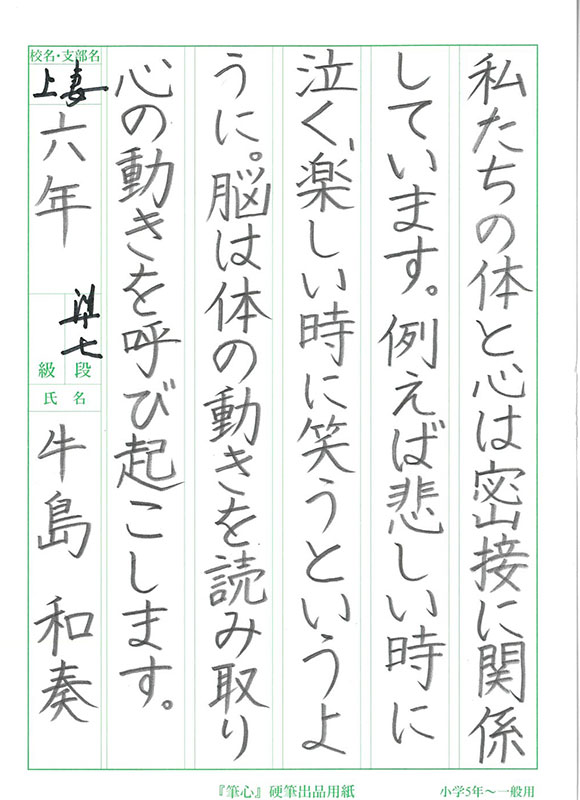 私たちの体と心は密接に関係
しています。例えば悲しい時に
泣く、楽しい時に笑うというよ
うに。脳は体の動きを読み取り
心の動きを呼び起こします。
校名・支部名
上妻
六年
準七
級 段
氏名
牛島 和奏
『筆心』硬筆出品用紙
小学5年〜一般用